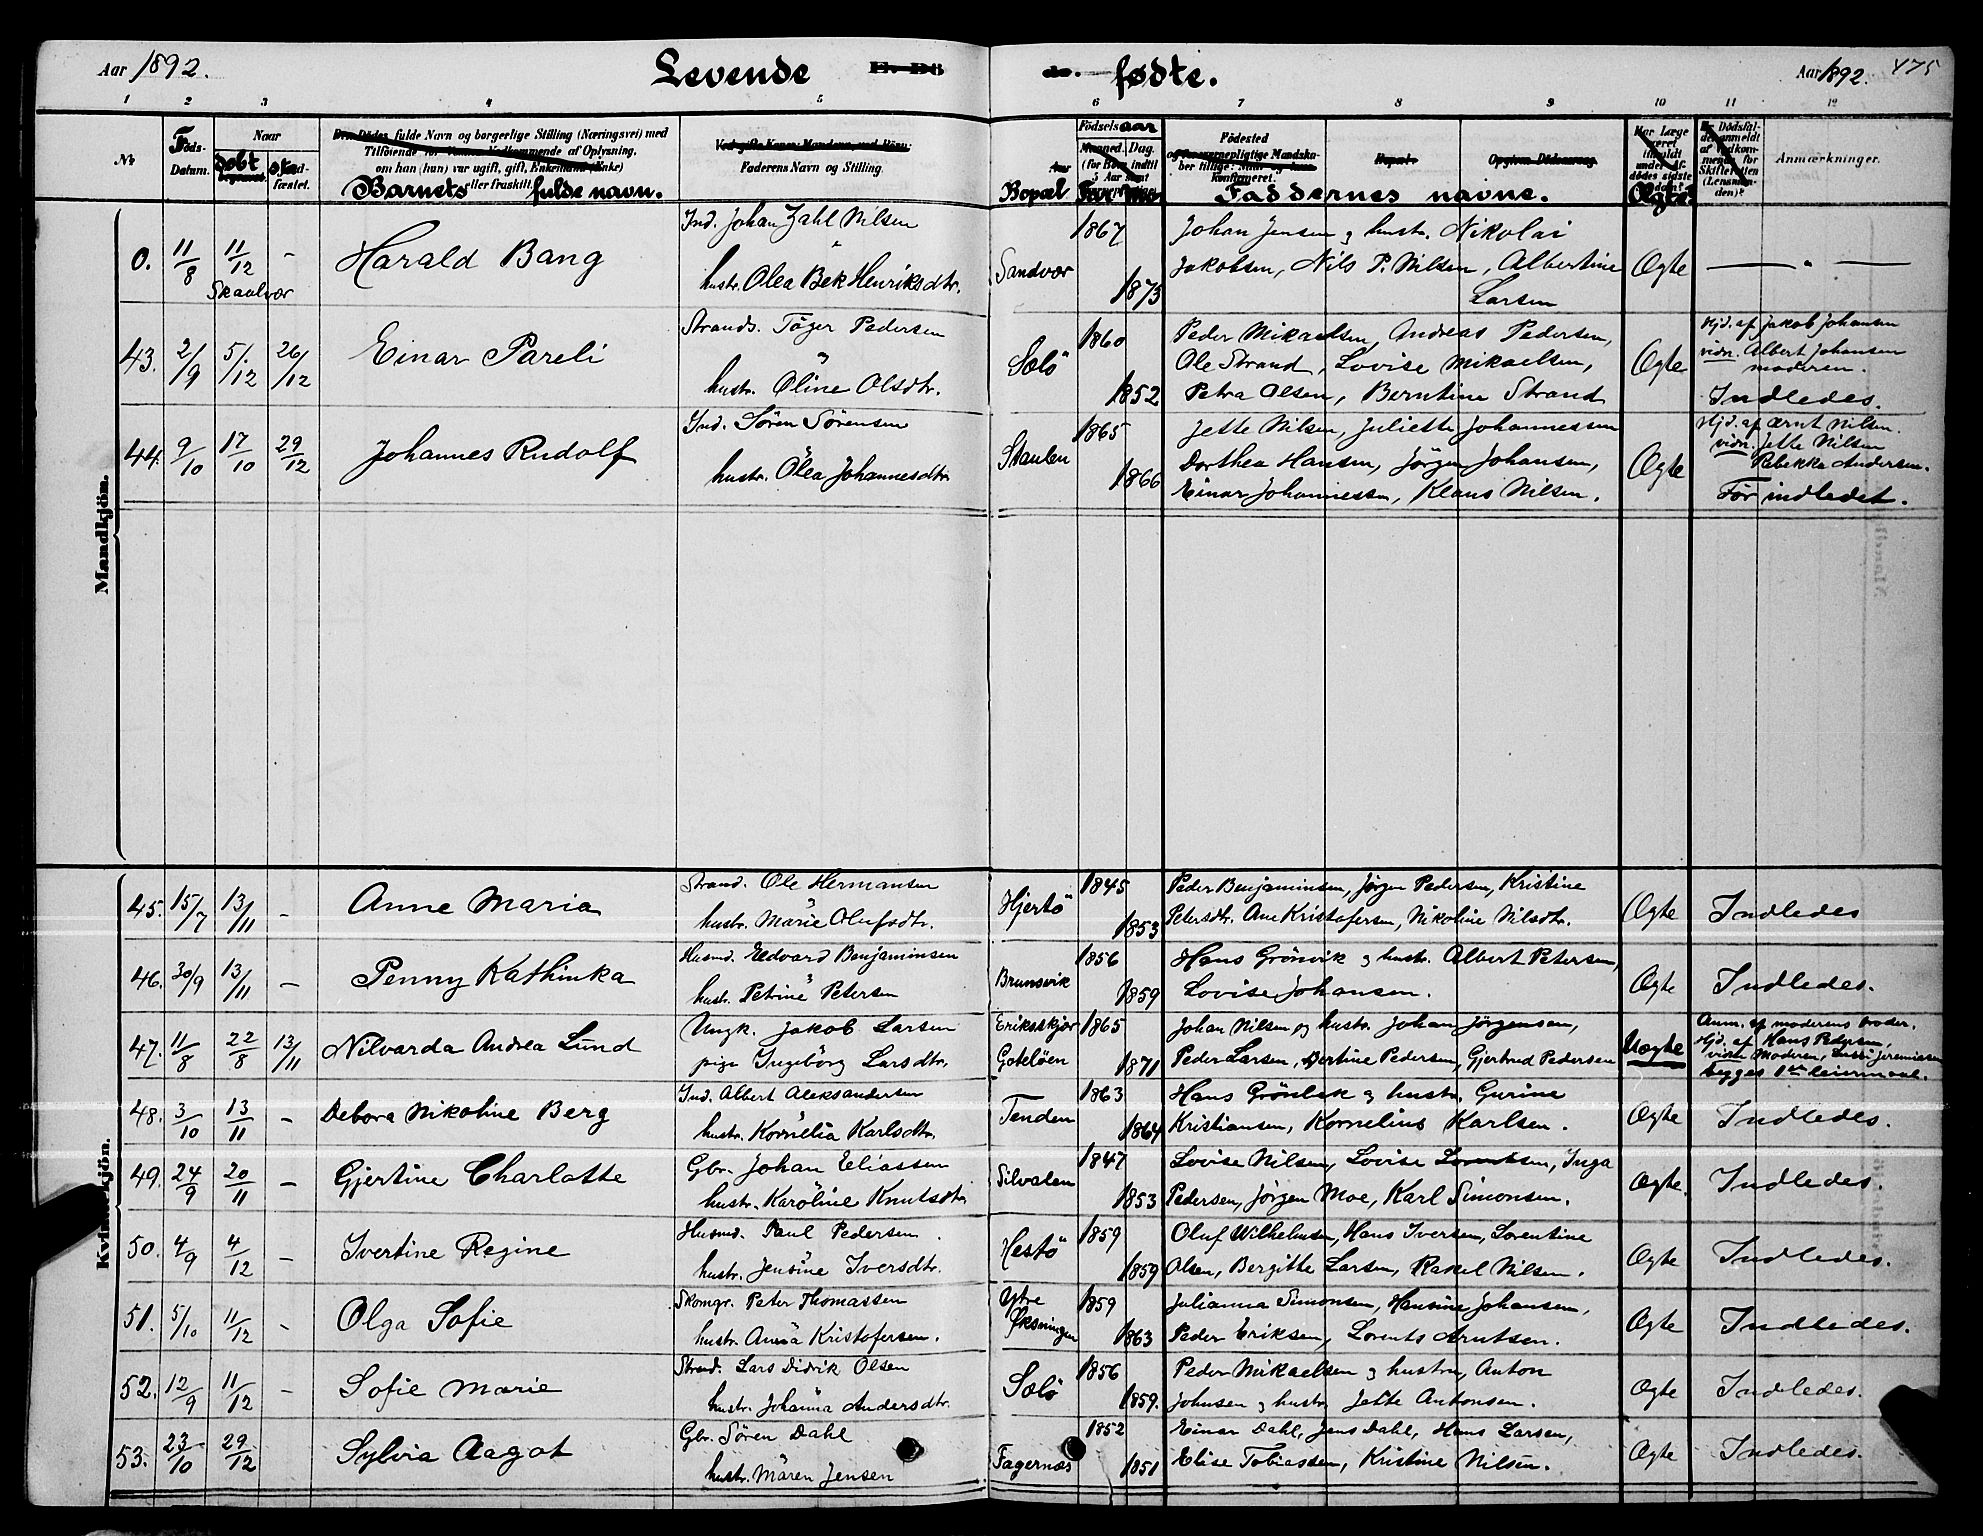 Aar 1892. Levende fødte. Aar 1892. 475
1 2 3 4 5 6 7 8 9 10 11 12
No Føds-Datum. Naar døbt Stadfæstet. Barnets fulde navn. Faderens Navn og Stilling. Bopæl Fødselsaar Far Mo Faddernes navne. Ægte Anmærkninger.
Mandkjön.
0. 11/8 11/12 - Harald Bang Ind. Johan Zahl Nilsen Sandvær 1867 Johan Jensen og hustr. Nikolai Ægte — " —
Skaalvær hustr. Olea Bek Henriksdtr. 1873 Jakobsen, Nils P. Nilsen, Albertine
Larsen
43. 2/9 5/12 26/12 Einar Pareli Strands. Töger Pedersen Sælö 1860 Peder Mikaelsen, Andreas Pedersen, Ægte Hjd. af Jakob Johansen
Ole Strand, Lovise Mikaelsen, vidn. Albert Johansen
moderen.
hustr. Oline Olsdtr. 1852 Petra Olsen, Berntine Strand Indledes.
44. 9/10 17/10 29/12 Johannes Rudolf Ind. Sören Sörensen Staulen 1865 Jette Nilsen, Juliette Johannessen Ægte Hjd. af Ærnt Nilsen.
vidn. Jette Nilsen
hustr. Olea Johannesdtr 1866 Dorthea Hansen, Jörgen Johansen, Rebekka Andersen.
Einar Johannessen, Klaus Nilsen. Før indledet.
Kvindekjön.
45. 15/7 13/11 - Anne Maria Strand. Ole Hermansen Hjertö 1845 Peder Benjaminsen, Jørgen Pedersen, Kristine Ægte Indledes
hustr. Marie Olufsdtr. 1853 Petersdtr. Ane Kristofersen, Nikoline Nilsdtr.
46. 30/9 13/11 - Penny Kathinka Husmd. Edvard Benjaminsen Brunsvik 1856 Hans Grönvik og hustr. Albert Petersen, Ægte Indledes.
hustr. Petrine Petersen 1859 Lovise Johansen.
47. 11/8 22/8 13/11 Nilvarda Andrea Lund Ungk. Jakob Larsen Eriksskjær 1865 Johan Nilsen og hustr. Johan Jörgensen, Uægte Anm. af moderens broder.
Hjd. af Hans Pedersen,
pige Ingeborg Larsdtr. Goteløen 1871 Peder Larsen, Dortine Pedersen, Gjertrud Pedersen vidn. Moderen, Jeremiassen
begges 1ste leiermaal.
48. 3/10 13/11 - Debora Nikoline Berg Ind. Albert Aleksandersen Tenden 1863 Hans Grönbek og hustr. Gurine Ægte Indledes.
hustr. Kornelia Karlsdtr. 1864 Kristiansen, Kornelius Karlsen.
49. 24/9 20/11 - Gjertine Charlotte Gbr. Johan Eliassen Silvalen 1847 Lovise Nilsen, Lovise Lorentsen, Inga Ægte. Indledes.
hustr. Karoline Knutsdtr 1853 Pedersen, Jørgen Moe, Karl Simonsen.
50. 4/9 4/12 - Ivertine Regine Husmd. Paul Pedersen Hestö 1859 Oluf Wilhelmsen, Hans Iversen, Lorentine Ægte Indledes.
hustr. Jensine Iversdtr. 1859 Olsen, Bergitte Larsen, Rakel Nilsen.
51. 5/10 11/12 - Olga Sofie Skomgr. Peter Thomassen Ytre Øksningen 1859 Julianna Simonsen, Hansine Johansen, Ægte Indledes.
hustr. Anna Kristofersen. 1863 Peder Eriksen, Lorents Arntsen.
52. 12/9 11/12 - Sofie Marie Strand. Lars Didrik Olsen Sælö 1856 Peder Mikaelsen og hustru, Anton Ægte Indledes.
hustr. Johanna Andersdtr. 1859. Johnsen og hustru, Jette Antonsen.
53. 23/10 29/12 Sylvia Aagot Gbr. Sören Dahl Fagernæs 1852 Einar Dahl, Jens Dahl, Hans Larsen, Ægte Indledes.
hustr. Maren Jensen 1851 Elise Tobiassen, Kristine Nilsen.